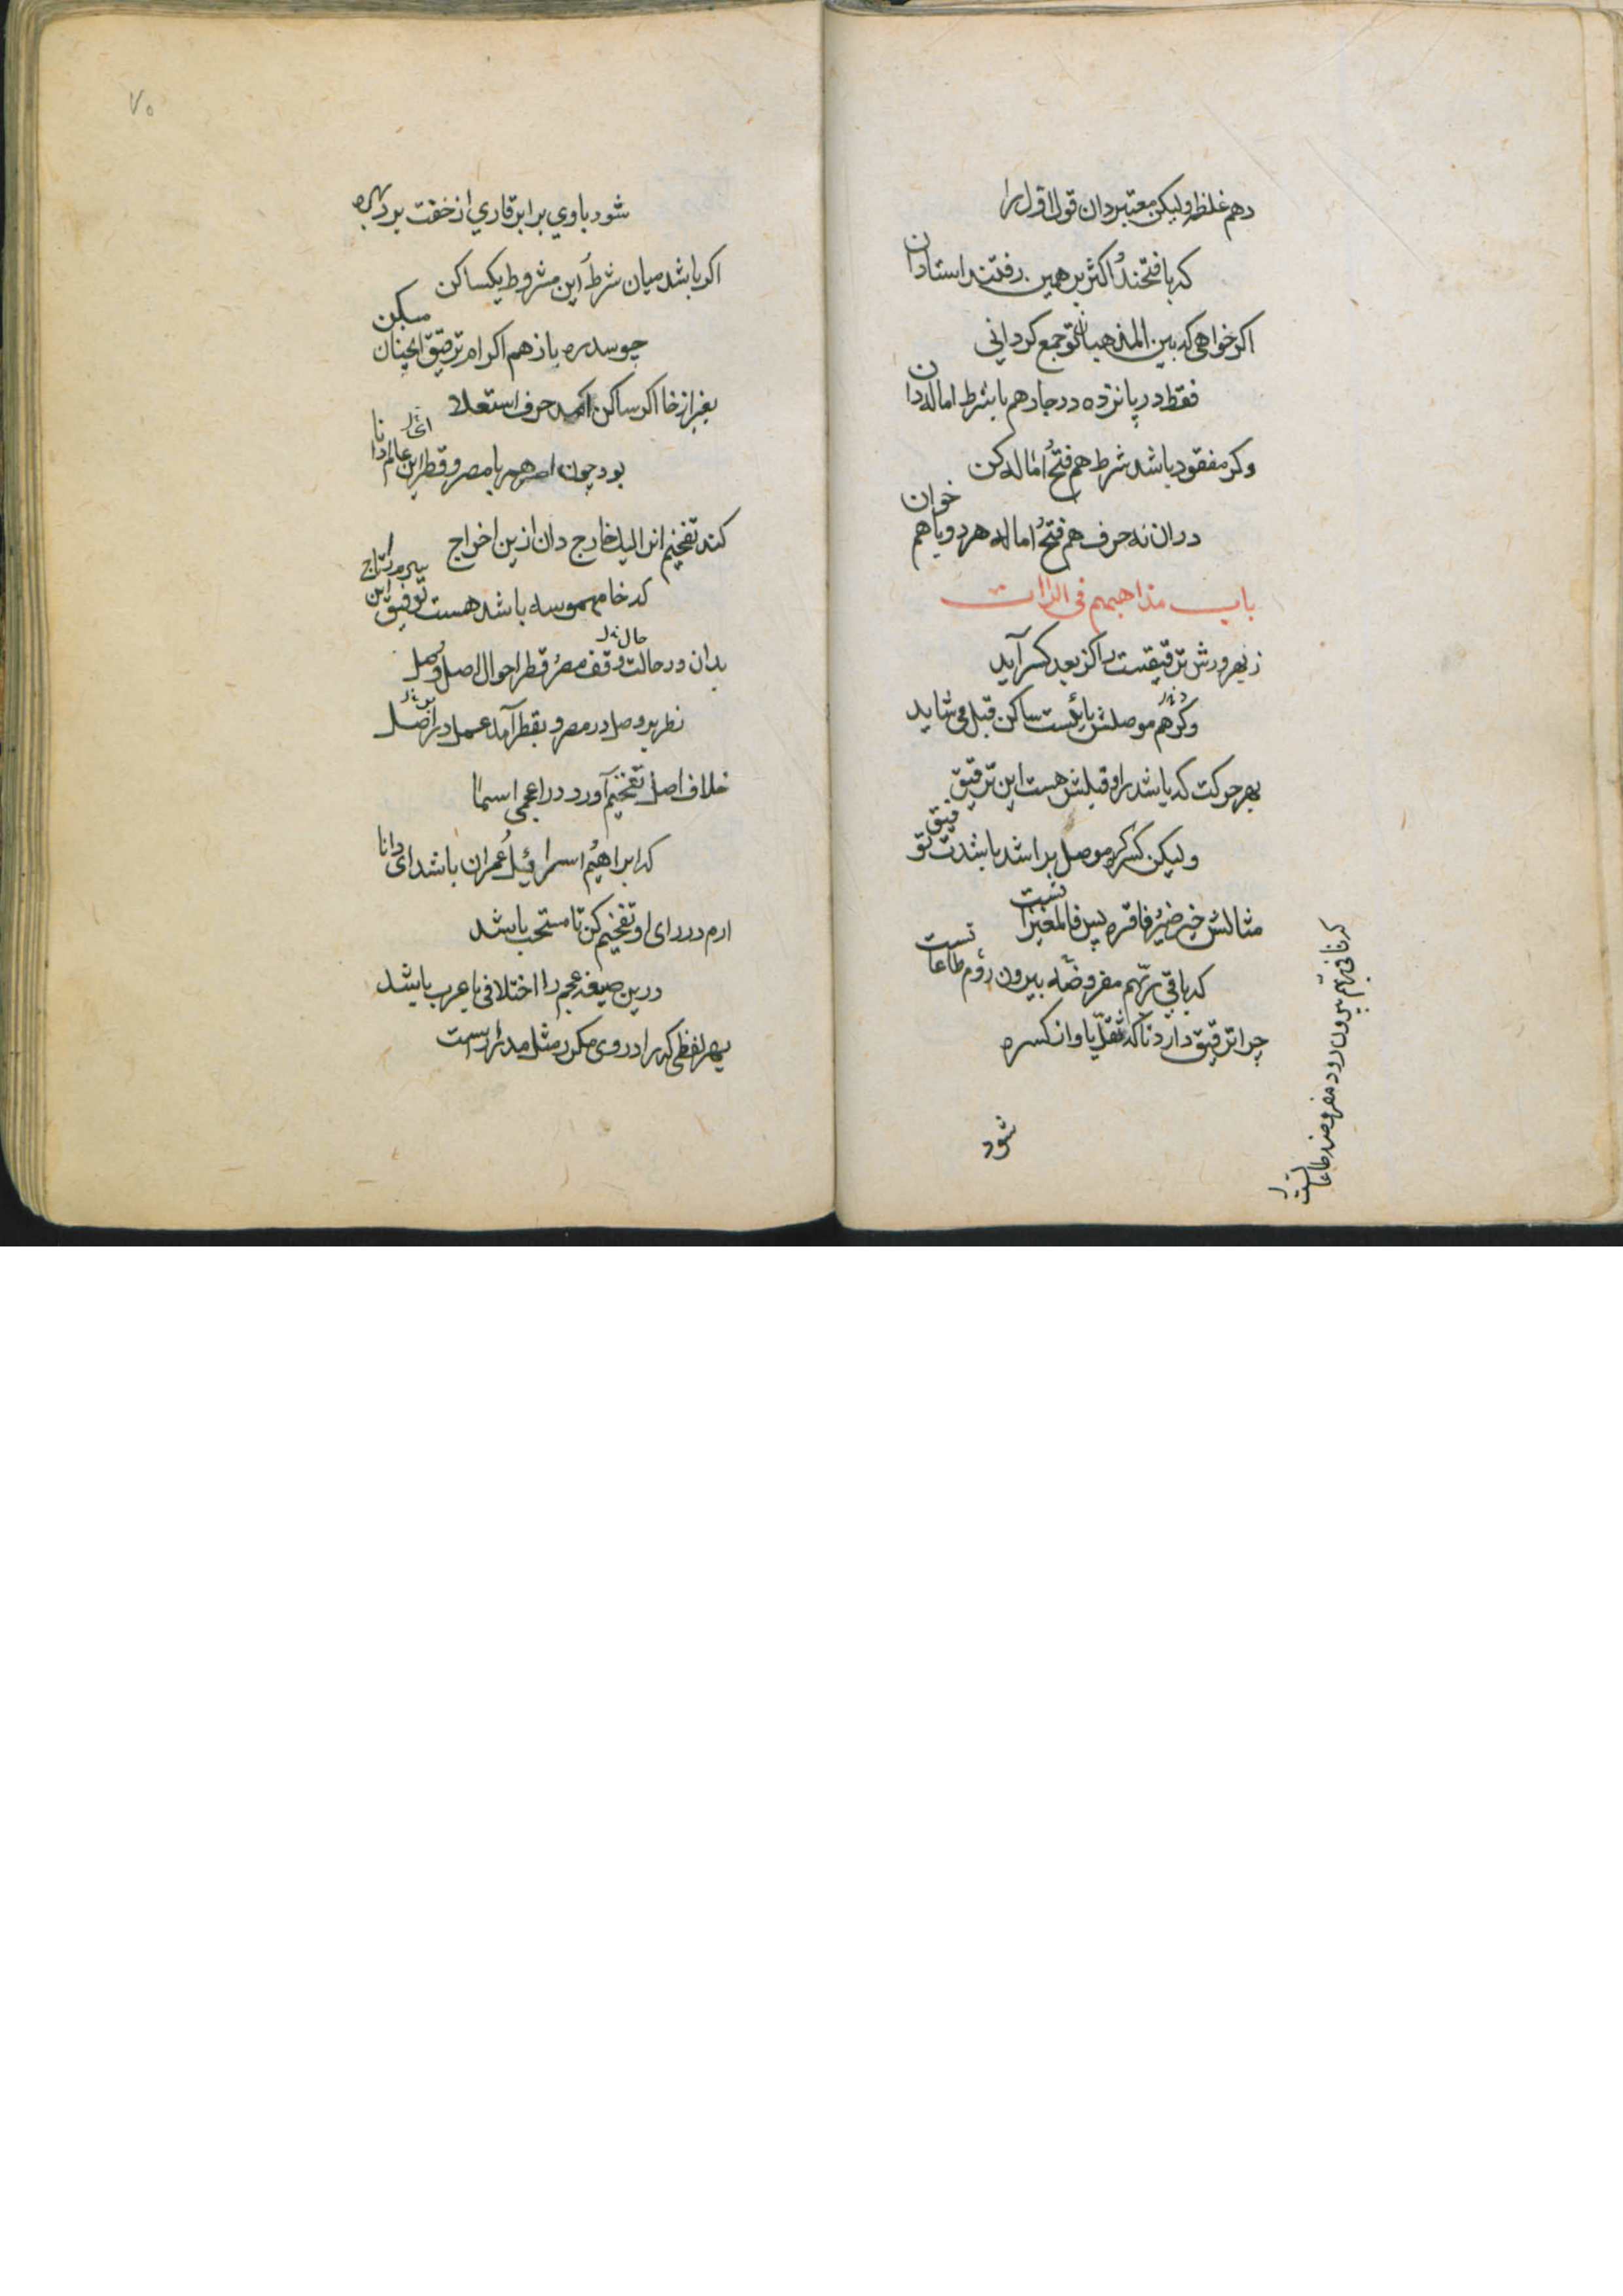 دهم غلظه ولیکن معتبر دان قول اول را
که با فتحند اکثر بر همین رفتند استادان
اکر خواهی که بین المذهبیان تو جمع کردانی
فقط در پانزده در جا دهم با شرط اماله دان
وکر مفقود باشد شرط هم فتح اماله کن
در ان نه حرف هم فتح اماله هر دو یا هم خوان
باب مذاهبهم فی الراات
ز بهر ورش ترقیقست را کز بعد کسر آید
وکر هم موصلش یائست ساکن قبل می شاید
بهر حرکت که باشد را و قبلش هست این ترقیق
ولیکن کسر کر موصل برا شد باشدت توفیق
مثالش خیر ضیر فاقره پس فالمغیراتست
که باقی ربّهم مفروضه بیرون طاعاتست
چرا ترقیق دارد تا که ثقل یا وان کسره
شود
بیرون رود مفروضه طاعاتست
۷۰
شود با وی برابر قاری از خفت برد بهره
اکر باشد میان شرط این مشروط یکساکن
چو سدره باز هم اکراه ترقیق انچنان
بغیر از خا اکر ساکن حرف استعلا
بود چون اصرهم یا مصر و قطر این عالم دانا
کند تفخیم انرا لیک خارج دان ازین اخراج
که خا مهموسه باشد هست توفیق این
بدان در حالت وقف مصر قطر احوال اصل وصل
نظر بر وصل در مصر و بقطر آمد عمل در اصل
خلاف اصل تفخیم آورد در اعجمی اسما
که ابراهیم اسرائیل عمران باشد ای دانا
ارم در رای او تفخیم کن تا مستحب باشد
درین صیغه عجم را اختلافی با عرب باشد
بهر لفظی که را در وی مکرر مثل مدرارست